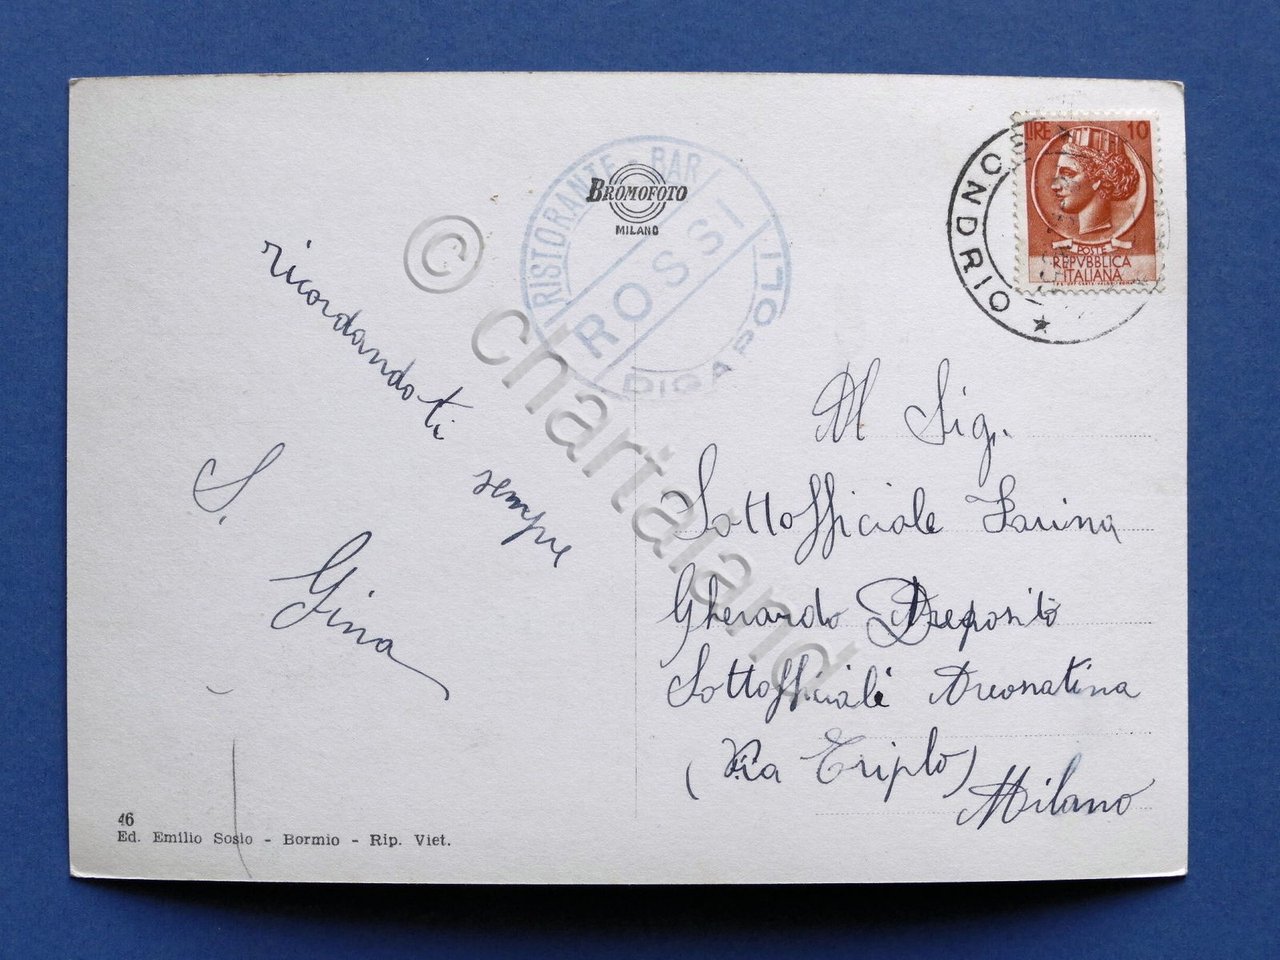 BROMOFOTO
MILANO
RISTORANTE - BAR
ROSSI
DIGAPOLI
LIRE 10
POSTE
REPVBBLICA
ITALIANA
SONDRIO
ricordandoti
sempre
S.
Gina
Al Sig.
Sottofficiale Farina
Gherardo Deposito
Sottofficiali Areonatina
(Via Triplo)
Milano
46
Ed. Emilio Sosio - Bormio - Rip. Viet.
© Chartaland